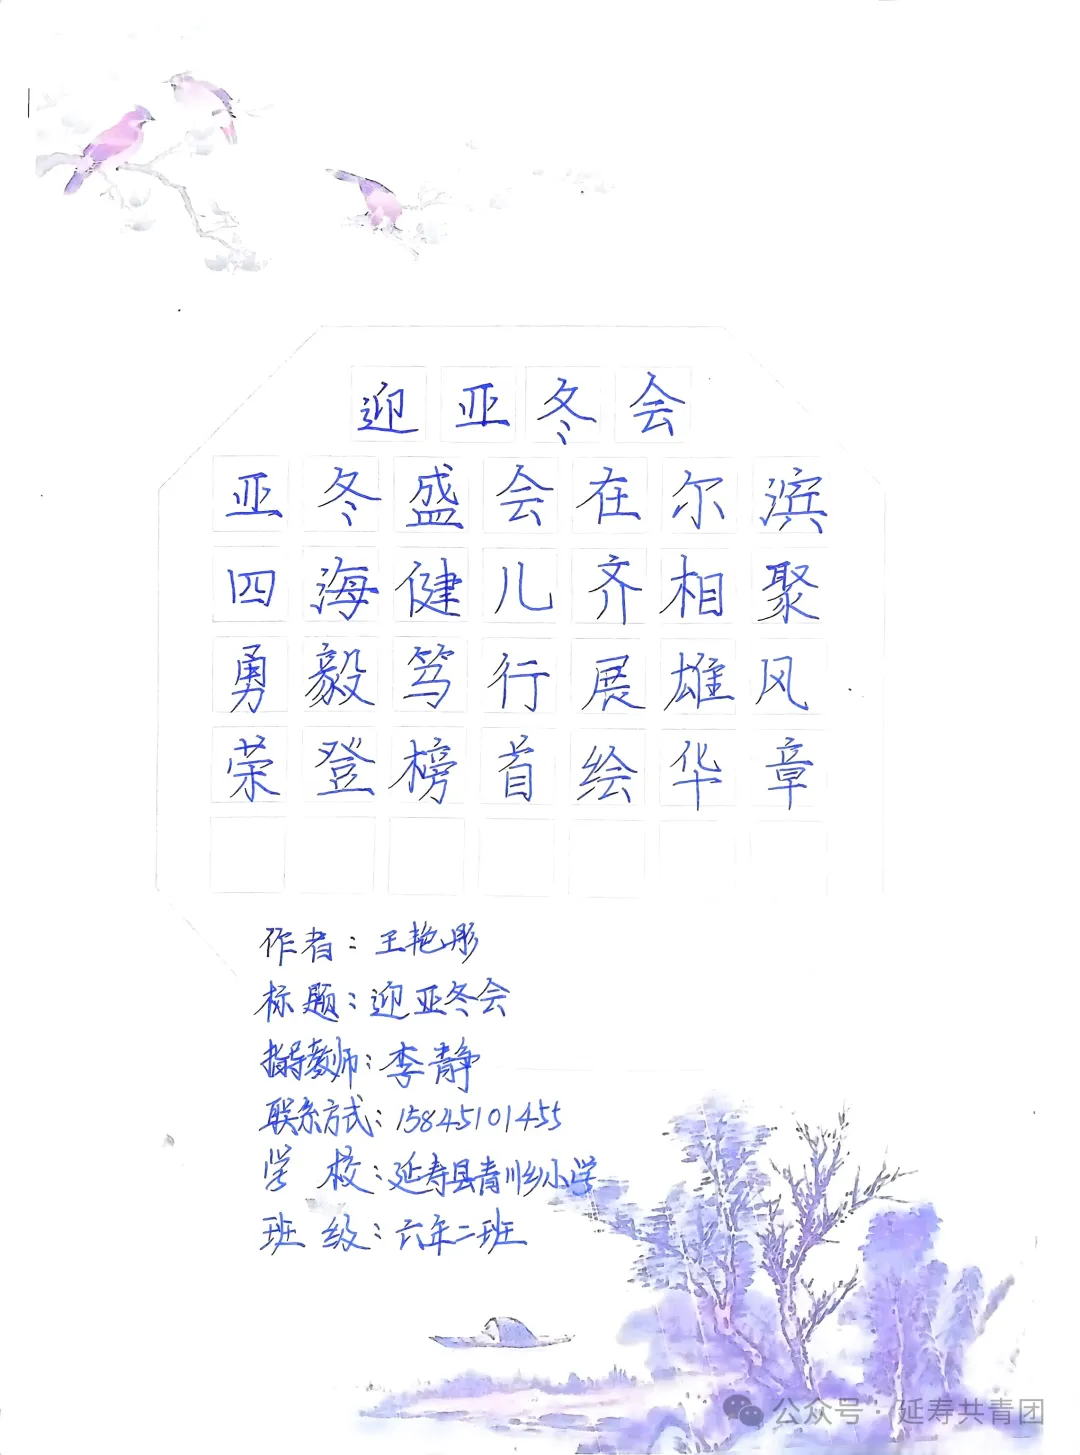 迎亚冬会
亚冬盛会在尔滨
四海健儿齐相聚
勇毅笃行展雄风
荣登榜首绘华章
作者：王艳彤
标题：迎亚冬会
指导教师：李静
联系方式：15845101455
学校：延寿县青川乡小学
班级：六年二班
公众号·延寿共青团